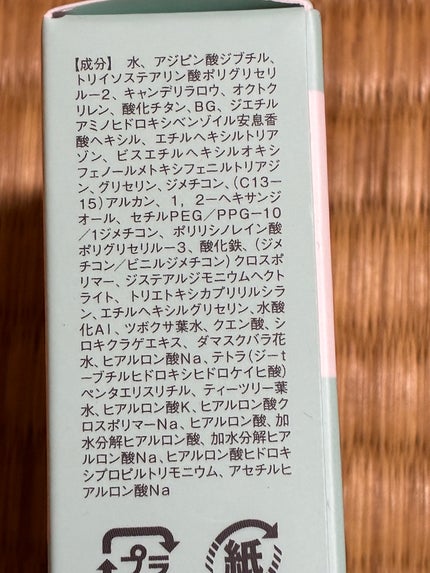 【成分】 水、アジピン酸ジブチル、
トリイソステアリン酸ポリグリセリ
ル－2、キャンデリラロウ、オクトク
リレン、酸化チタン、BG、ジエチル
アミノヒドロキシベンゾイル安息香
酸ヘキシル、エチルヘキシルトリア
ゾン、ビスエチルヘキシルオキシ
フェノールメトキシフェニルトリアジ
ン、グリセリン、ジメチコン、（C13－
15）アルカン、1，2－ヘキサンジ
オール、セチルPEG／PPG－10
／1ジメチコン、ポリリシノレイン酸
ポリグリセリル－3、酸化鉄、（ジメ
チコン／ビニルジメチコン）クロスポ
リマー、ジステアルジモニウムヘクト
ライト、トリエトキシカプリリルシラ
ン、エチルヘキシルグリセリン、水酸
化Al、ツボクサ葉水、クエン酸、シ
ロキクラゲエキス、ダマスクバラ花
水、ヒアルロン酸Na、テトラ（ジ－t
－ブチルヒドロキシヒドロケイヒ酸）
ペンタエリスリチル、ティーツリー葉
水、ヒアルロン酸K、ヒアルロン酸ク
ロスポリマーNa、ヒアルロン酸、加
水分解ヒアルロン酸、加水分解ヒア
ルロン酸Na、ヒアルロン酸ヒドロキ
シプロピルトリモニウム、アセチルヒ
アルロン酸Na
プラ
紙